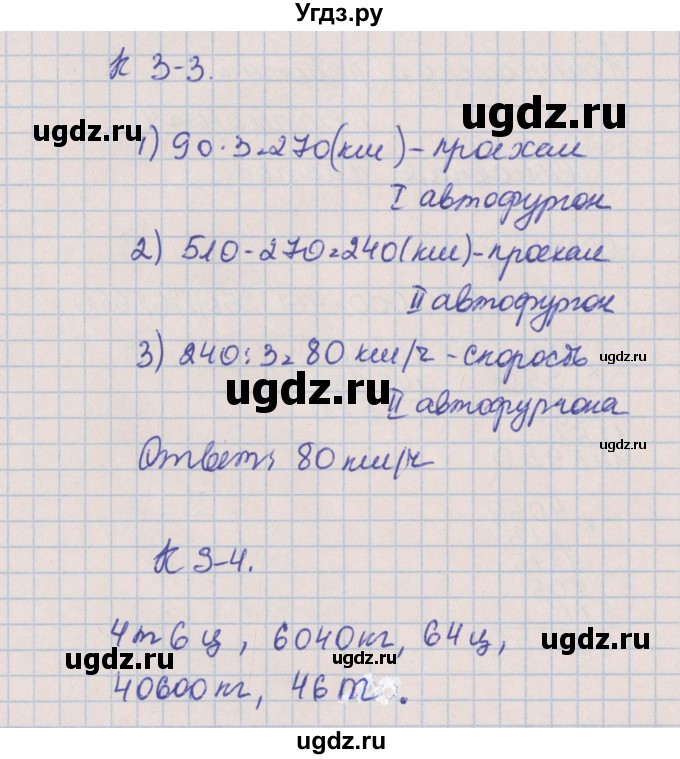 Угдз.ру
К 3-3.
ugdz.ru
ugdz.ru
1) 90·3=270(км) - проехал
I автофургон
2) 510-270=240(км) - проехал
II автофургон
3) 240:3=80 км/ч - скорость
ugdz.ru
ugdz.ru
II автофургона
ugdz.ru
Ответ: 80 км/ч
К 3-4.
4т 6ц, 6040кг, 64ц,
ugdz.ru
ugdz.ru
ugdz.ru
40600кг, 46т.
ugdz.ru